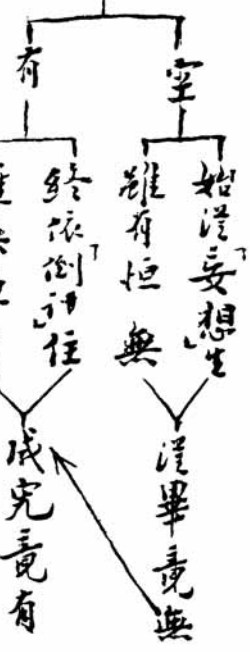 空
始從「妄想」生
雖有恒無
從畢竟無
有
終依「倒計」住
成究竟有